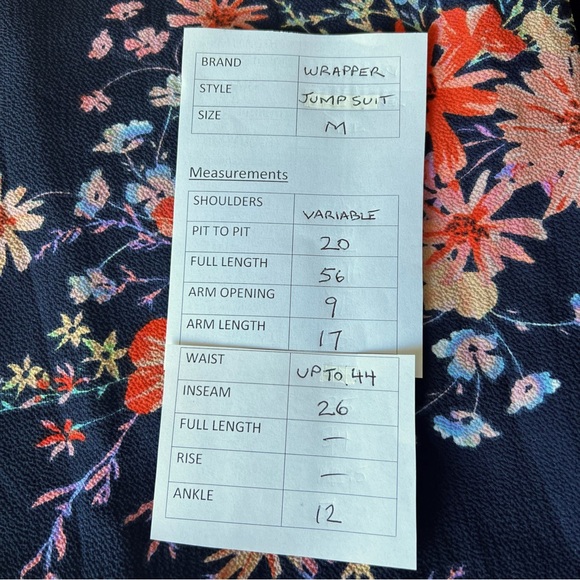 BRAND WRAPPER
STYLE JUMP SUIT
SIZE M
Measurements
SHOULDERS VARIABLE
PIT TO PIT 20
FULL LENGTH 56
ARM OPENING 9
ARM LENGTH 17
WAIST UP TO 44
INSEAM 26
FULL LENGTH —
RISE —
ANKLE 12